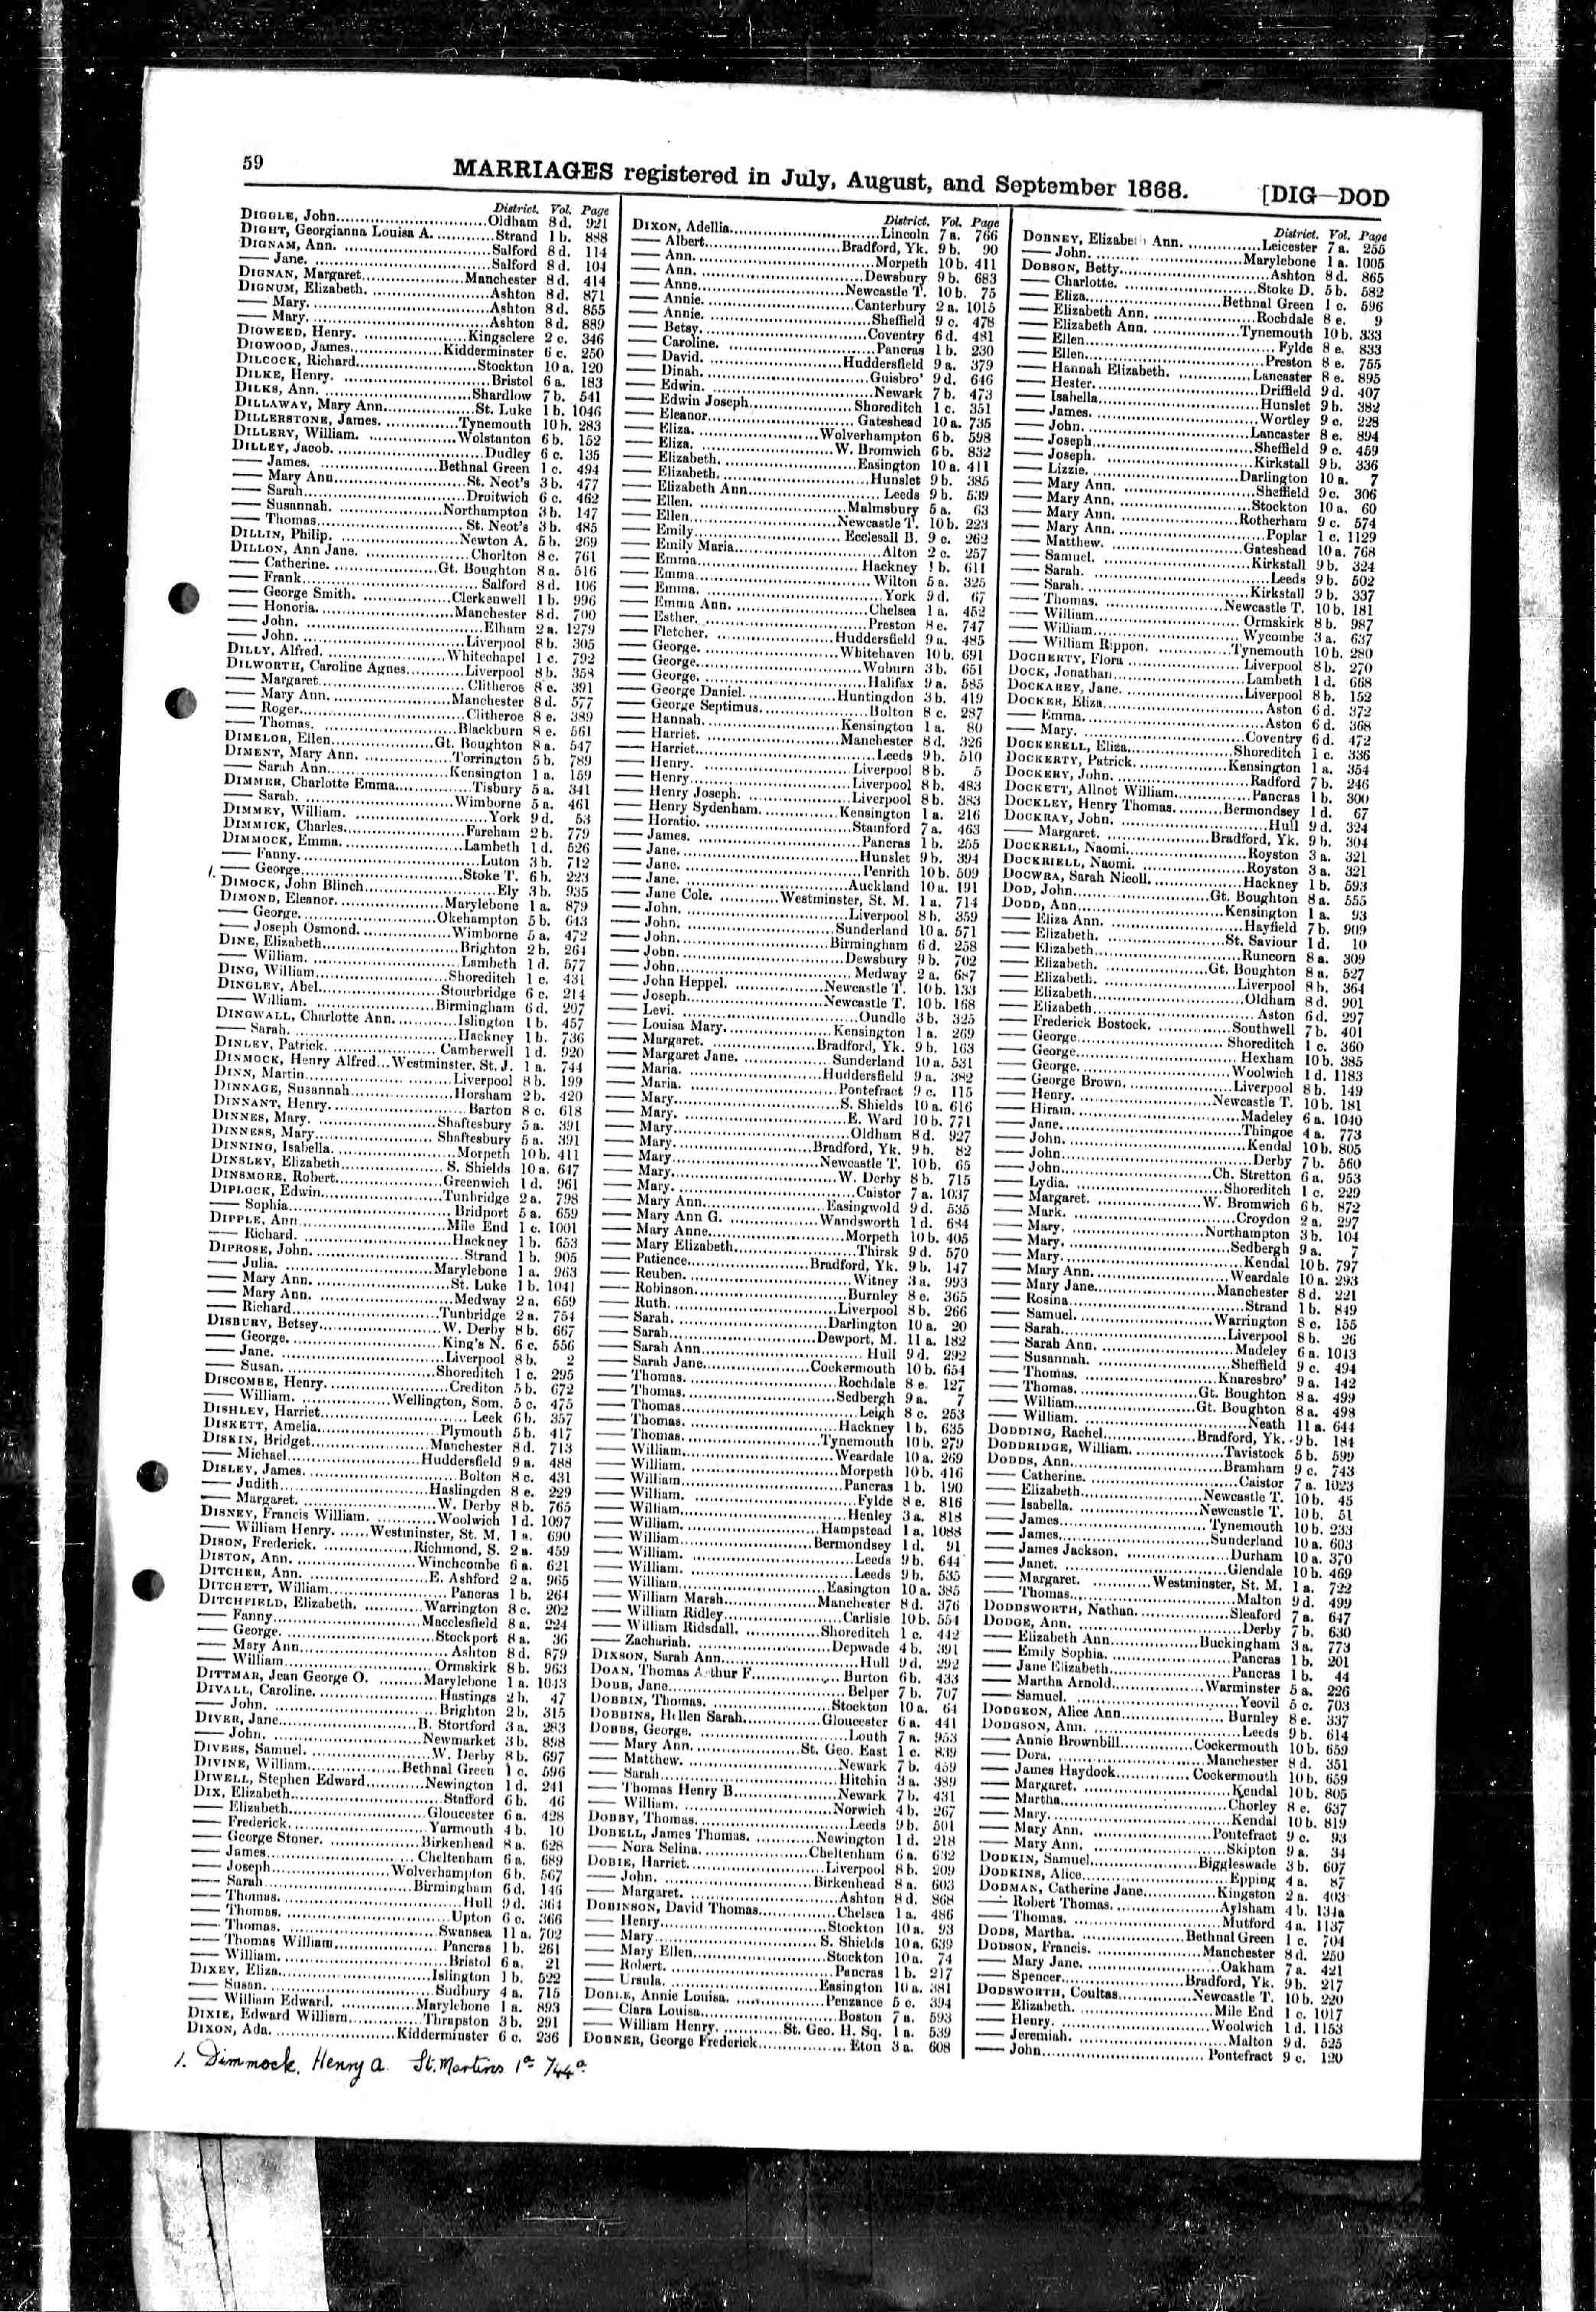 59
MARRIAGES registered in July, August, and September 1868.
[DIG—DOD
District. Vol. Page
DIGGLE, John Oldham 8d. 921
DIGHT, Georgianna Louisa A. Strand 1b. 888
DIGNAM, Ann. Salford 8d. 114
— Jane. Salford 8d. 104
DIGNAN, Margaret Manchester 8d. 414
DIGNUM, Elizabeth. Ashton 8d. 871
— Mary. Ashton 8d. 855
— Mary. Ashton 8d. 889
DIGWEED, Henry. Kingsclere 2c. 346
DIGWOOD, James Kidderminster 6c. 250
DILCOCK, Richard Stockton 10a. 120
DILKE, Henry. Bristol 6a. 183
DILKS, Ann. Shardlow 7b. 541
DILLAWAY, Mary Ann St. Luke 1b. 1046
DILLERSTONE, James. Tynemouth 10b. 283
DILLERY, William. Wolstanton 6b. 152
DILLEY, Jacob. Dudley 6c. 135
— James. Bethnal Green 1c. 494
— Mary Ann St. Neot's 3b. 477
— Sarah Droitwich 6c. 462
— Susannah. Northampton 3b. 147
— Thomas St. Neot's 3b. 485
DILLIN, Philip. Newton A. 5b. 269
DILLON, Ann Jane. Chorlton 8c. 761
— Catherine. Gt. Boughton 8a. 516
— Frank Salford 8d. 106
— George Smith. Clerkenwell 1b. 996
— Honoria Manchester 8d. 700
— John. Elham 2a. 1279
— John. Liverpool 8b. 305
DILLY, Alfred. Whitechapel 1c. 792
DILWORTH, Caroline Agnes Liverpool 8b. 358
— Margaret Clitheroe 8e. 391
— Mary Ann Manchester 8d. 577
— Roger Clitheroe 8e. 389
— Thomas. Blackburn 8e. 561
DIMELOR, Ellen Gt. Boughton 8a. 547
DIMENT, Mary Ann. Torrington 5b. 789
— Sarah Ann Kensington 1a. 159
DIMMER, Charlotte Emma Tisbury 5a. 341
— Sarah. Wimborne 5a. 461
DIMMEY, William. York 9d. 53
DIMMICK, Charles Fareham 2b. 779
DIMMOCK, Emma Lambeth 1d. 526
— Fanny Luton 3b. 712
1. — George Stoke T. 6b. 223
DIMOCK, John Blinch Ely 3b. 935
DIMOND, Eleanor. Marylebone 1a. 879
— George. Okehampton 5b. 643
— Joseph Osmond. Wimborne 5a. 472
DINE, Elizabeth Brighton 2b. 264
— William. Lambeth 1d. 577
DING, William Shoreditch 1c. 431
DINGLEY, Abel Stourbridge 6c. 214
— William. Birmingham 6d. 207
DINGWALL, Charlotte Ann. Islington 1b. 457
— Sarah. Hackney 1b. 736
DINLEY, Patrick. Camberwell 1d. 920
DINMOCK, Henry Alfred Westminster, St. J. 1a. 744
DINN, Martin Liverpool 8b. 199
DINNAGE, Susannah Horsham 2b. 420
DINNANT, Henry Barton 8c. 618
DINNES, Mary. Shaftesbury 5a. 391
DINNESS, Mary Shaftesbury 5a. 391
DINNING, Isabella. Morpeth 10b. 411
DINSLEY, Elizabeth S. Shields 10a. 647
DINSMORE, Robert Greenwich 1d. 961
DIPLOCK, Edwin Tunbridge 2a. 798
— Sophia Bridport 5a. 659
DIPPLE, Ann Mile End 1c. 1001
— Richard. Hackney 1b. 653
DIPROSE, John. Strand 1b. 905
— Julia. Marylebone 1a. 963
— Mary Ann. St. Luke 1b. 1041
— Mary Ann. Medway 2a. 659
— Richard Tunbridge 2a. 754
DISBURY, Betsey W. Derby 8b. 667
— George. King's N. 6c. 556
— Jane. Liverpool 8b. 2
— Susan. Shoreditch 1c. 295
DISCOMBE, Henry Crediton 5b. 672
— William. Wellington, Som. 5c. 475
DISHLEY, Harriet Leek 6b. 357
DISKETT, Amelia Plymouth 5b. 417
DISKIN, Bridget Manchester 8d. 713
— Michael Huddersfield 9a. 488
DISLEY, James. Bolton 8c. 431
— Judith Haslingden 8e. 229
— Margaret. W. Derby 8b. 765
DISNEY, Francis William. Woolwich 1d. 1097
— William Henry. Westminster, St. M. 1a. 690
DISON, Frederick. Richmond, S. 2a. 459
DISTON, Ann. Winchcombe 6a. 621
DITCHER, Ann. E. Ashford 2a. 965
DITCHETT, William Pancras 1b. 264
DITCHFIELD, Elizabeth. Warrington 8c. 202
— Fanny Macclesfield 8a. 224
— George. Stockport 8a. 36
— Mary Ann Ashton 8d. 879
— William Ormskirk 8b. 963
DITTMAR, Jean George O. Marylebone 1a. 1043
DIVALL, Caroline. Hastings 2b. 47
— John. Brighton 2b. 315
DIVER, Jane B. Stortford 3a. 283
— John. Newmarket 3b. 898
DIVERS, Samuel. W. Derby 8b. 697
DIVINE, William Bethnal Green 1c. 596
DIWELL, Stephen Edward Newington 1d. 241
DIX, Elizabeth Stafford 6b. 46
— Elizabeth Gloucester 6a. 428
— Frederick Yarmouth 4b. 10
— George Stoner. Birkenhead 8a. 628
— James Cheltenham 6a. 689
— Joseph Wolverhampton 6b. 567
— Sarah Birmingham 6d. 146
— Thomas. Hull 9d. 364
— Thomas. Upton 6c. 366
— Thomas. Swansea 11a. 702
— Thomas William Pancras 1b. 261
— William. Bristol 6a. 21
DIXEY, Eliza Islington 1b. 522
— Susan. Sudbury 4a. 715
— William Edward. Marylebone 1a. 893
DIXIE, Edward William Thrapston 3b. 291
DIXON, Ada. Kidderminster 6c. 236
District. Vol. Page
DIXON, Adellia Lincoln 7a. 766
— Albert Bradford, Yk. 9b. 90
— Ann. Morpeth 10b. 411
— Ann. Dewsbury 9b. 683
— Anne Newcastle T. 10b. 75
— Annie. Canterbury 2a. 1015
— Annie. Sheffield 9c. 478
— Betsy. Coventry 6d. 481
— Caroline. Pancras 1b. 230
— David. Huddersfield 9a. 379
— Dinah. Guisbro' 9d. 646
— Edwin. Newark 7b. 473
— Edwin Joseph Shoreditch 1c. 351
— Eleanor Gateshead 10a. 735
— Eliza. Wolverhampton 6b. 598
— Eliza. W. Bromwich 6b. 832
— Elizabeth. Easington 10a. 411
— Elizabeth. Hunslet 9b. 385
— Elizabeth Ann Leeds 9b. 539
— Ellen. Malmsbury 5a. 63
— Ellen Newcastle T. 10b. 223
— Emily Ecclesall B. 9c. 262
— Emily Maria Alton 2c. 257
— Emma Hackney 1b. 611
— Emma Wilton 5a. 325
— Emma. York 9d. 67
— Emma Ann. Chelsea 1a. 452
— Esther. Preston 8e. 747
— Fletcher. Huddersfield 9a. 485
— George. Whitehaven 10b. 691
— George Woburn 3b. 651
— George. Halifax 9a. 585
— George Daniel. Huntingdon 3b. 419
— George Septimus Bolton 8c. 287
— Hannah Kensington 1a. 80
— Harriet. Manchester 8d. 326
— Harriet Leeds 9b. 510
— Henry. Liverpool 8b. 5
— Henry Liverpool 8b. 483
— Henry Joseph. Liverpool 8b. 383
— Henry Sydenham. Kensington 1a. 216
— Horatio. Stamford 7a. 463
— James. Pancras 1b. 255
— Jane. Hunslet 9b. 394
— Jane. Penrith 10b. 509
— Jane. Auckland 10a. 191
— Jane Cole. Westminster, St. M. 1a. 714
— John. Liverpool 8b. 359
— John. Sunderland 10a. 571
— John Birmingham 6d. 258
— John Dewsbury 9b. 702
— John Medway 2a. 687
— John Heppel. Newcastle T. 10b. 133
— Joseph Newcastle T. 10b. 168
— Levi. Oundle 3b. 325
— Louisa Mary Kensington 1a. 269
— Margaret. Bradford, Yk. 9b. 163
— Margaret Jane. Sunderland 10a. 531
— Maria. Huddersfield 9a. 382
— Maria. Pontefract 9c. 115
— Mary S. Shields 10a. 616
— Mary. E. Ward 10b. 771
— Mary Oldham 8d. 927
— Mary. Bradford, Yk. 9b. 82
— Mary Newcastle T. 10b. 65
— Mary W. Derby 8b. 715
— Mary. Caistor 7a. 1037
— Mary Ann Easingwold 9d. 535
— Mary Ann G. Wandsworth 1d. 684
— Mary Anne Morpeth 10b. 405
— Mary Elizabeth Thirsk 9d. 570
— Patience Bradford, Yk. 9b. 147
— Reuben. Witney 3a. 993
— Robinson Burnley 8e. 365
— Ruth. Liverpool 8b. 266
— Sarah. Darlington 10a. 20
— Sarah Dewport, M. 11a. 182
— Sarah Ann Hull 9d. 292
— Sarah Jane Cockermouth 10b. 654
— Thomas. Rochdale 8e. 127
— Thomas. Sedbergh 9a. 7
— Thomas Leigh 8c. 253
— Thomas. Hackney 1b. 635
— Thomas. Tynemouth 10b. 279
— William Weardale 10a. 269
— William. Morpeth 10b. 416
— William Pancras 1b. 190
— William. Fylde 8e. 816
— William Henley 3a. 818
— William. Hampstead 1a. 1088
— William Bermondsey 1d. 91
— William. Leeds 9b. 644
— William. Leeds 9b. 535
— William Easington 10a. 385
— William Marsh Manchester 8d. 376
— William Ridley Carlisle 10b. 554
— William Ridsdall. Shoreditch 1c. 442
— Zachariah. Depwade 4b. 391
DIXSON, Sarah Ann Hull 9d. 292
DOAN, Thomas Arthur F Burton 6b. 433
DOBB, Jane Belper 7b. 707
DOBBIN, Thomas. Stockton 10a. 64
DOBBINS, Hellen Sarah Gloucester 6a. 441
DOBBS, George. Louth 7a. 953
— Mary Ann St. Geo. East 1c. 839
— Matthew. Newark 7b. 459
— Sarah Hitchin 3a. 389
— Thomas Henry B Newark 7b. 431
— William. Norwich 4b. 267
DOBBY, Thomas Leeds 9b. 501
DOBELL, James Thomas. Newington 1d. 218
— Nora Selina Cheltenham 6a. 632
DOBIE, Harriet Liverpool 8b. 209
— John. Birkenhead 8a. 603
— Margaret. Ashton 8d. 868
DOBINSON, David Thomas Chelsea 1a. 486
— Henry Stockton 10a. 93
— Mary S. Shields 10a. 639
— Mary Ellen Stockton 10a. 74
— Robert. Pancras 1b. 217
— Ursula. Easington 10a. 381
DOBLE, Annie Louisa. Penzance 5c. 394
— Clara Louisa Boston 7a. 593
— William Henry. St. Geo. H. Sq. 1a. 539
DOBNER, George Frederick Eton 3a. 608
District. Vol. Page
DOBNEY, Elizabeth Ann. Leicester 7a. 255
— John. Marylebone 1a. 1005
DOBSON, Betty Ashton 8d. 865
— Charlotte. Stoke D. 5b. 582
— Eliza Bethnal Green 1c. 596
— Elizabeth Ann. Rochdale 8e. 9
— Elizabeth Ann. Tynemouth 10b. 333
— Ellen Fylde 8e. 833
— Ellen Preston 8e. 755
— Hannah Elizabeth. Lancaster 8e. 895
— Hester Driffield 9d. 407
— Isabella Hunslet 9b. 382
— James. Wortley 9c. 228
— John. Lancaster 8e. 894
— Joseph Sheffield 9c. 459
— Joseph. Kirkstall 9b. 336
— Lizzie. Darlington 10a. 7
— Mary Ann. Sheffield 9c. 306
— Mary Ann. Stockton 10a. 60
— Mary Ann. Rotherham 9c. 574
— Mary Ann. Poplar 1c. 1129
— Matthew. Gateshead 10a. 768
— Samuel. Kirkstall 9b. 324
— Sarah. Leeds 9b. 502
— Sarah. Kirkstall 9b. 337
— Thomas. Newcastle T. 10b. 181
— William Ormskirk 8b. 987
— William Wycombe 3a. 637
— William Rippon. Tynemouth 10b. 280
DOCHERTY, Flora Liverpool 8b. 270
DOCK, Jonathan Lambeth 1d. 668
DOCKAREY, Jane. Liverpool 8b. 152
DOCKER, Eliza Aston 6d. 372
— Emma Aston 6d. 368
— Mary. Coventry 6d. 472
DOCKERELL, Eliza Shoreditch 1c. 336
DOCKERTY, Patrick. Kensington 1a. 354
DOCKERY, John. Radford 7b. 246
DOCKETT, Allnot William Pancras 1b. 300
DOCKLEY, Henry Thomas Bermondsey 1d. 67
DOCKRAY, John. Hull 9d. 324
— Margaret. Bradford, Yk. 9b. 304
DOCKRELL, Naomi Royston 3a. 321
DOCKRIELL, Naomi. Royston 3a. 321
DOCWRA, Sarah Nicoll. Hackney 1b. 593
DOD, John Gt. Boughton 8a. 555
DODD, Ann Kensington 1a. 93
— Eliza Ann. Hayfield 7b. 909
— Elizabeth. St. Saviour 1d. 10
— Elizabeth Runcorn 8a. 309
— Elizabeth. Gt. Boughton 8a. 527
— Elizabeth. Liverpool 8b. 364
— Elizabeth Oldham 8d. 901
— Elizabeth Aston 6d. 297
— Frederick Bostock. Southwell 7b. 401
— George Shoreditch 1c. 360
— George Hexham 10b. 385
— George. Woolwich 1d. 1183
— George Brown. Liverpool 8b. 149
— Henry. Newcastle T. 10b. 181
— Hiram. Madeley 6a. 1040
— Jane Thingoe 4a. 773
— John. Kendal 10b. 805
— John Derby 7b. 560
— John Ch. Stretton 6a. 953
— Lydia. Shoreditch 1c. 229
— Margaret. W. Bromwich 6b. 872
— Mark. Croydon 2a. 297
— Mary. Northampton 3b. 104
— Mary. Sedbergh 9a. 7
— Mary Kendal 10b. 797
— Mary Ann. Weardale 10a. 293
— Mary Jane Manchester 8d. 221
— Rosina Strand 1b. 849
— Samuel. Warrington 8c. 155
— Sarah Liverpool 8b. 26
— Sarah Ann. Madeley 6a. 1013
— Susannah. Sheffield 9c. 494
— Thomas. Knaresbro' 9a. 142
— Thomas. Gt. Boughton 8a. 499
— William Gt. Boughton 8a. 498
— William. Neath 11a. 644
DODDING, Rachel Bradford, Yk. 9b. 184
DODDRIDGE, William. Tavistock 5b. 599
DODDS, Ann Bramham 9c. 743
— Catherine. Caistor 7a. 1023
— Elizabeth Newcastle T. 10b. 45
— Isabella. Newcastle T. 10b. 51
— James Tynemouth 10b. 233
— James Sunderland 10a. 603
— James Jackson. Durham 10a. 370
— Janet. Glendale 10b. 469
— Margaret. Westminster, St. M. 1a. 722
— Thomas Malton 9d. 499
DODDSWORTH, Nathan. Sleaford 7a. 647
DODGE, Ann. Derby 7b. 630
— Elizabeth Ann Buckingham 3a. 773
— Emily Sophia. Pancras 1b. 201
— Jane Elizabeth Pancras 1b. 44
— Martha Arnold Warminster 5a. 226
— Samuel. Yeovil 5c. 703
DODGEON, Alice Ann Burnley 8e. 337
DODGSON, Ann. Leeds 9b. 614
— Annie Brownbill Cockermouth 10b. 659
— Dora. Manchester 8d. 351
— James Haydock Cockermouth 10b. 659
— Margaret. Kendal 10b. 805
— Martha Chorley 8e. 637
— Mary Kendal 10b. 819
— Mary Ann. Pontefract 9c. 93
— Mary Ann. Skipton 9a. 34
DODKIN, Samuel Biggleswade 3b. 607
DODKINS, Alice Epping 4a. 87
DODMAN, Catherine Jane Kingston 2a. 403
— Robert Thomas. Aylsham 4b. 134a
— Thomas. Mutford 4a. 1137
DODS, Martha. Bethnal Green 1c. 704
DODSON, Francis. Manchester 8d. 250
— Mary Jane. Oakham 7a. 421
— Spencer Bradford, Yk. 9b. 217
DODSWORTH, Coultas Newcastle T. 10b. 220
— Elizabeth. Mile End 1c. 1017
— Henry. Woolwich 1d. 1153
— Jeremiah. Malton 9d. 525
— John Pontefract 9c. 120
1. Dimmock, Henry A. St. Martins 1a 744a